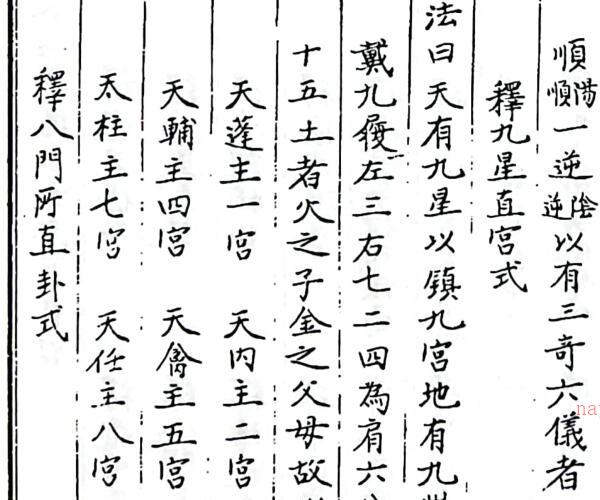 順陽順一逆陰逆以有三奇六儀者
釋九星直宮式
法曰天有九星以鎮九宮地有九
戴九履左三右七二四為肩六
十五土者火之子金之父母故
天蓬主一宮 天內主二宮
天輔主四宮 天禽主五宮
天柱主七宮 天任主八宮
釋八門所直卦式
na